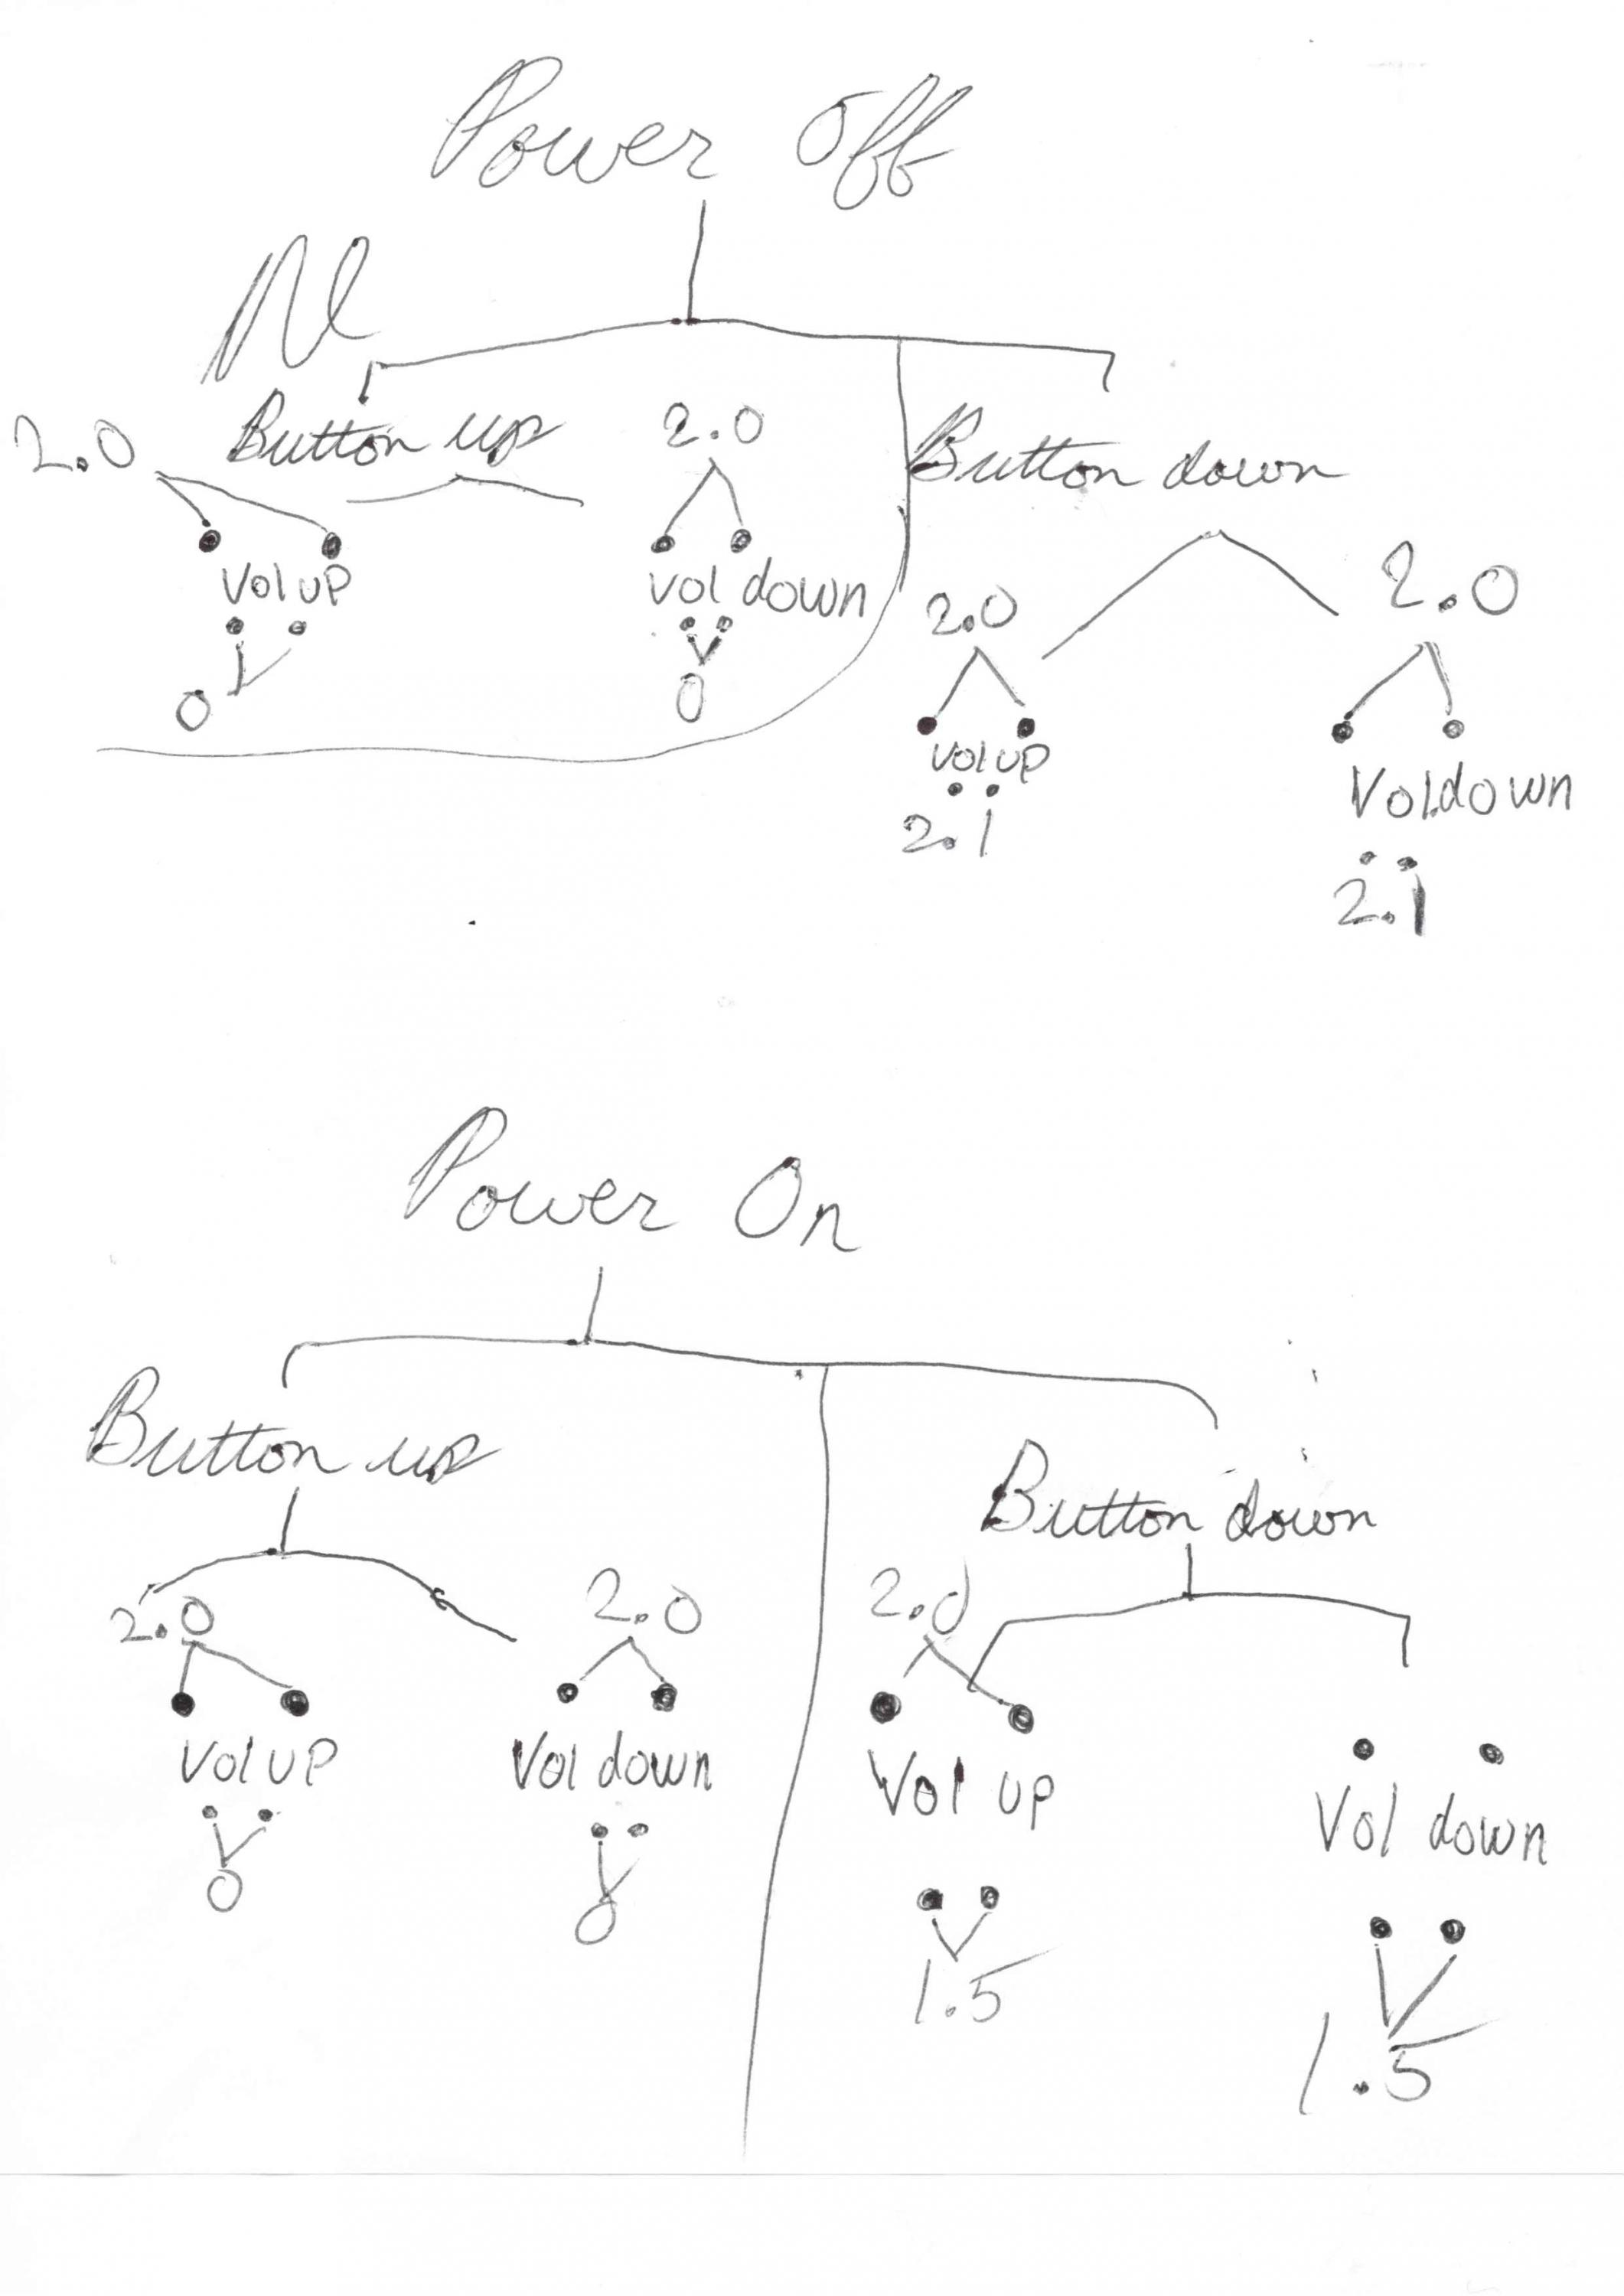 Power Off
Nl
Button up
2.0
2.0
Button down
Vol up
Vol down
0
0
2.0
2.0
Vol up
Vol down
2.1
2.1
Power On
Button up
Button down
2.0
2.0
2.0
Vol up
Vol down
Vol up
Vol down
0
0
1.5
1.5